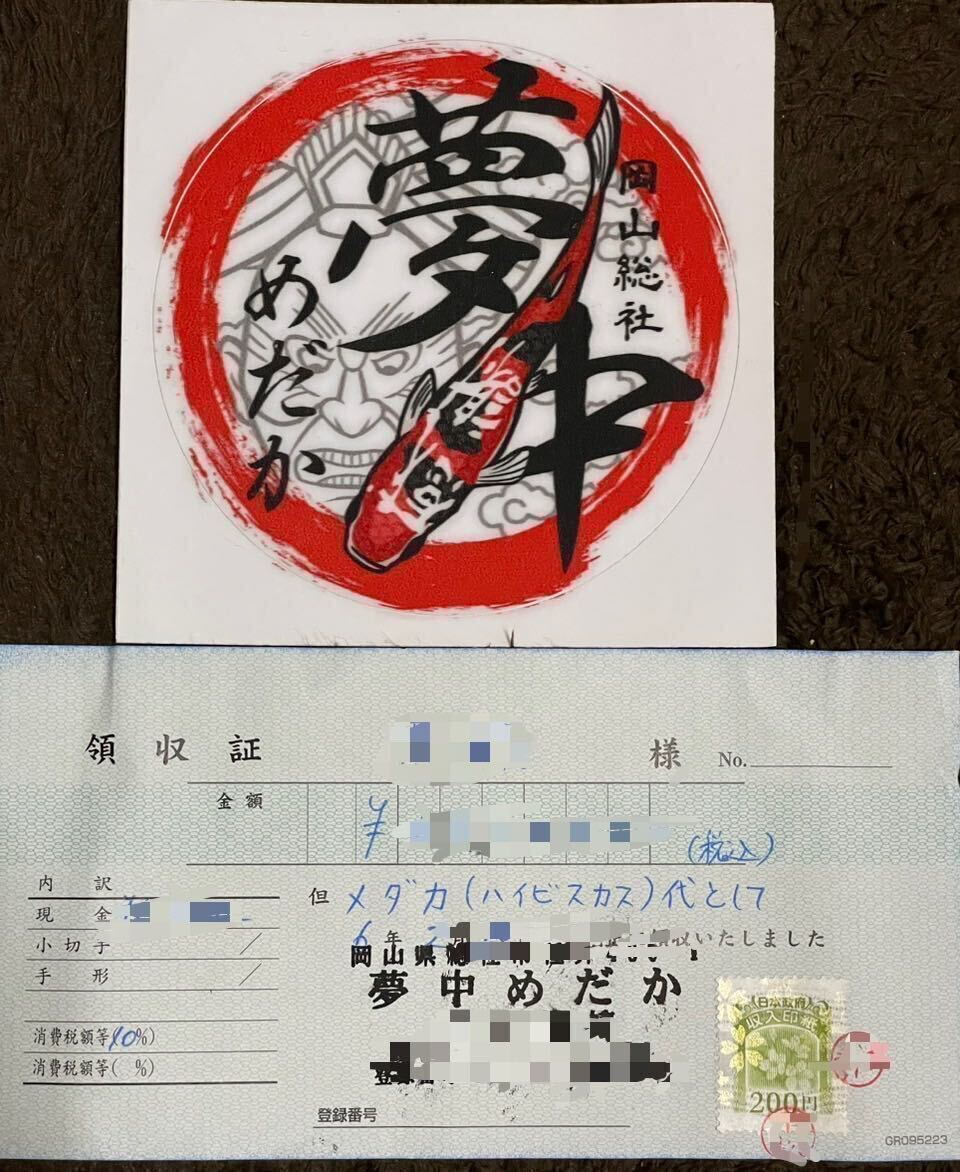 夢中
めだか
岡山総社
領収証
様
No.
金額
¥
(税込)
内訳
現金
小切手
手形
消費税額等(10%)
消費税額等( %)
但 メダカ(ハイビスカス)代として
6年2月
収いたしました
岡山県総社市
夢中めだか
登録番号
日本政府
収入印紙
200円
GR095223